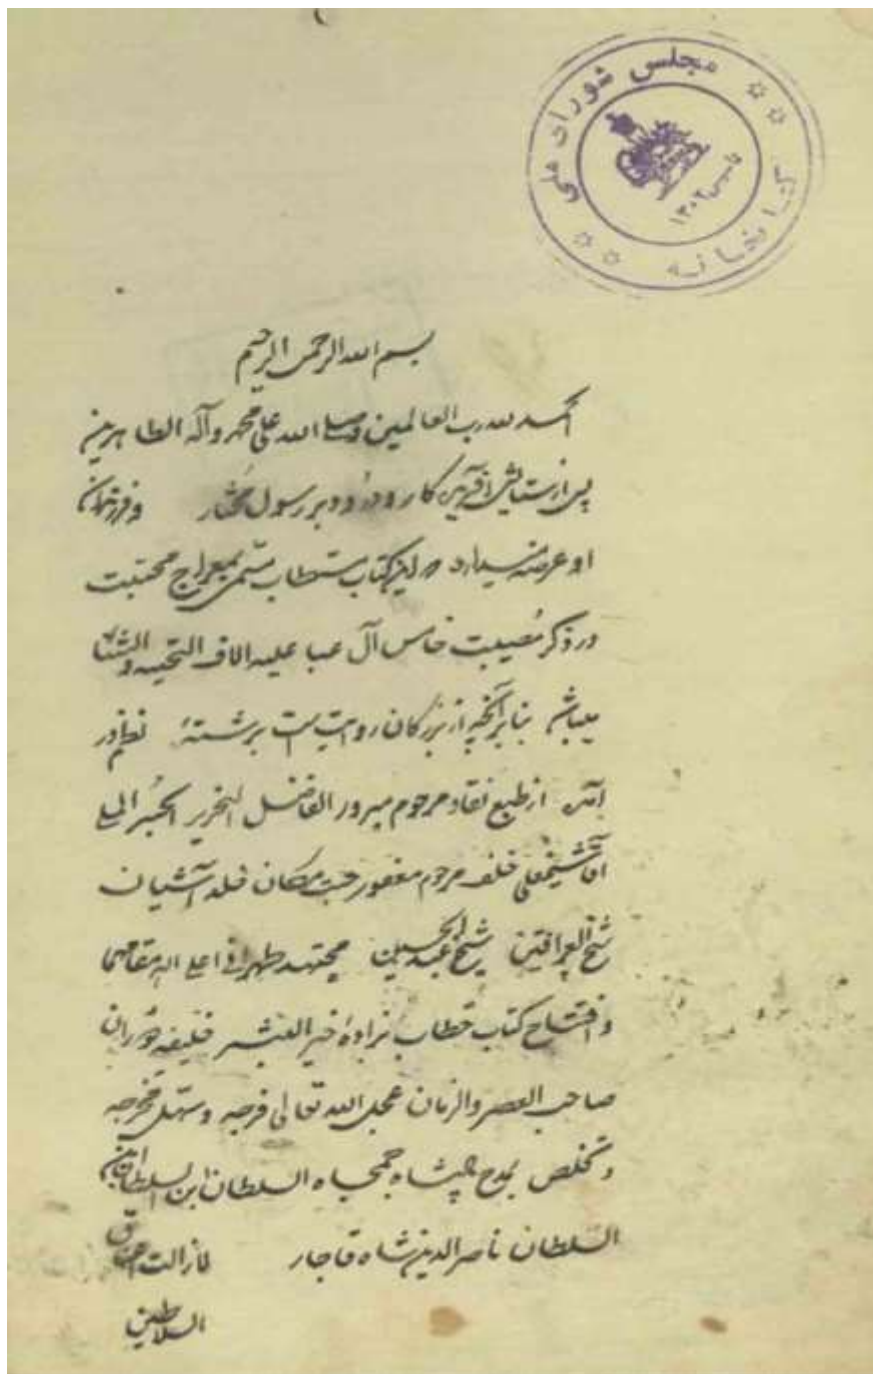 مجلس شورای ملی
کتابخانه
تاسیس ۱۳۰۲
بسم الله الرحمن الرحیم
الحمد لله رب العالمین وصلی الله علی محمد وآله الطاهرین
پس از ستایش آفرین کار و درود بر رسول مُختار و فرزندان
او عرضه میدارد این کتاب مستطاب مسمی بمعراج محبت
در ذکر مُصیبت خامس آل عبا علیه الاف التحیه والثناء
میباشد بنابر آنچه از بزرگان روایت است برشتهٔ نظم در
آمده از طبع نقاد مرحوم مبرور الفاضل النحریر الحبُر الملی
آقا شیخعلی خلف مرحوم مغفور جنت مکان خلد آشیان
شیخ العراقین شیخ عبدالحسین مجتهد طهرانی اعلی الله مقامهما
و افتتاح کتاب خطاب بزادهٔ خیر البشر خلیفه دوران
صاحب العصر والزمان عجل الله تعالی فرجه وسهل مخرجه
و تخلص بمدح پادشاه جمجاه السلطان ابن السلطان ابن
السلطان ناصرالدین شاه قاجار لازالت
السلاطین